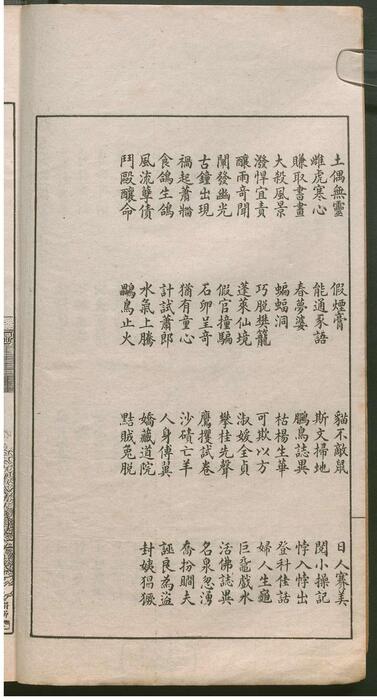 土偶無靈 假煙膏 貓不敵鼠 日人賽美
雌虎寒心 能通豕語 斯文掃地 閱小操記
賺取書畫 春夢婆 鵩鳥誌異 悖入悖出
大殺風景 蝙蝠洞 枯楊生華 登科佳話
潑悍宜責 巧脫樊籠 可欺以方 婦人生龜
釀雨奇聞 蓬萊仙境 淑媛全貞 巨黿戲水
闡發幽光 假官撞騙 攀桂先聲 活佛誌異
古鐘出現 石卵呈奇 鷹攫試卷 名泉忽湧
禍起蕭牆 猶有童心 沙磧亡羊 喬扮瞯夫
食鴿生鴿 計試蕭郎 人身傅翼 誣良為盜
風流孽債 水氣上騰 嬌藏道院 封姨猖獗
鬥毆釀命 鸛鳥止火 黠賊兔脫